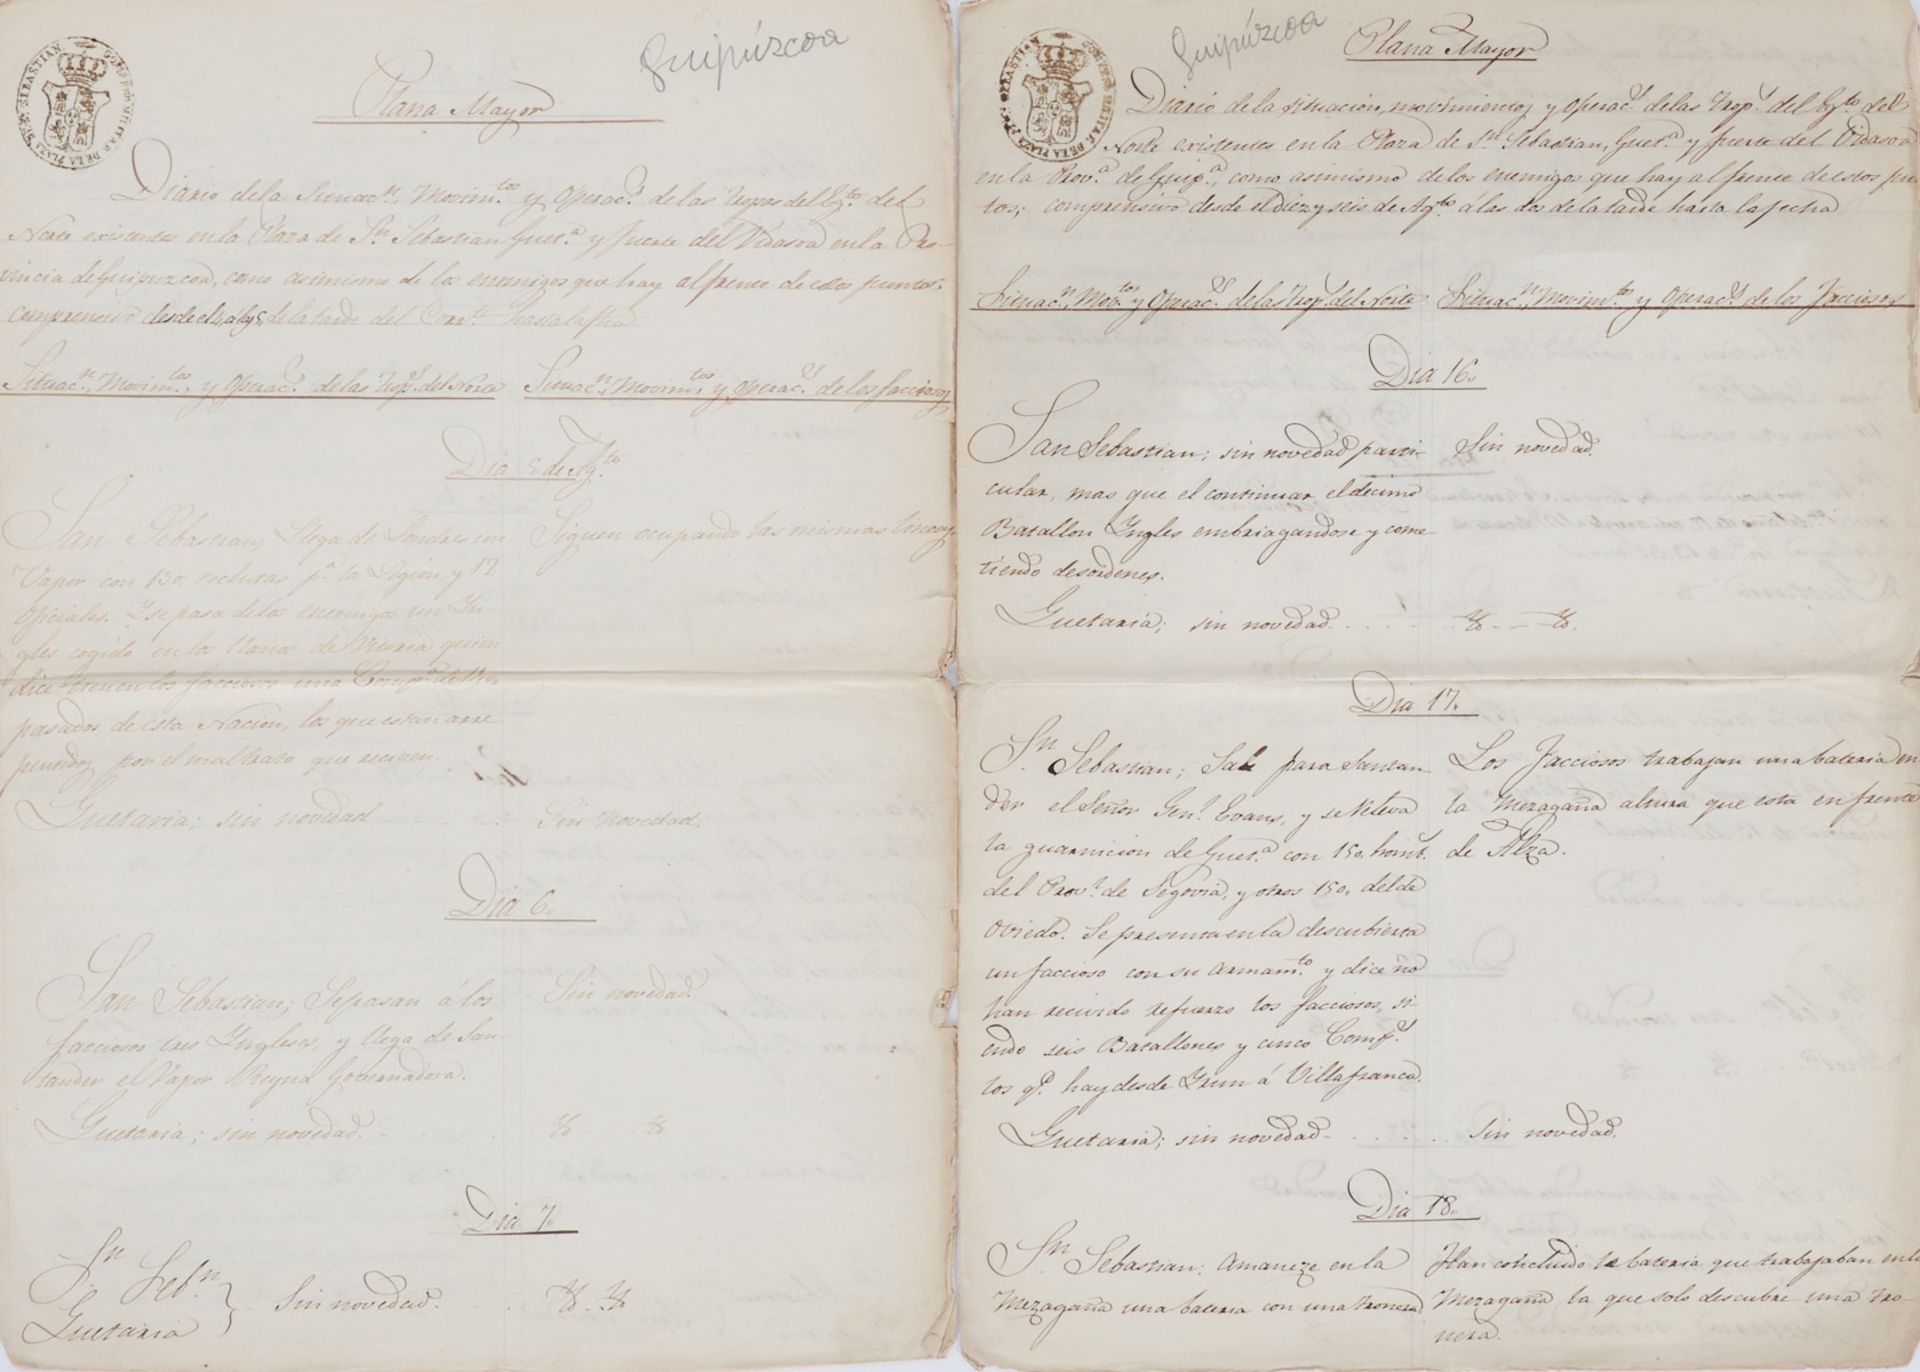 Guipúzcoa
Plana Mayor
Diario de la Situac.n, Movim.tos y Operac.s de las Tropas del Ex.to del
Norte existentes en la Plaza de S.n Sebastian, Guet.a y fuerte del Vidasoa en la Pro-
vincia de Guipuzcoa, como asimismo de los enemigos que hay al frente de estos puntos;
comprensivo desde el de la tarde del Corr.te hasta la fha
Situac.n, Movim.tos, y Operac.s de las Trop.s del Norte
Situac.n, Movim.tos, y operac.s de los facciosos
Dia 5 de Ag.to
San Sebastian; Llega de Londres un
Vapor con 130 reclutas p.a la Legion, y 17
Oficiales. Y se pasa de los enemigos un Yn-
gles cogido en los llanos de Vitoria quien
dice tienen los facciosos una Comp.a de
pasados de esta Nacion, los que estan arre
pentidos por el maltrato que reciven.
Siguen ocupando las mismas lineas
Guetaria; sin novedad
Sin novedad.
Dia 6.
San Sebastian; Se pasan á los
facciosos tres Yngleses, y llega de San-
tander el Vapor Reyna Gobernadora.
Sin novedad.
Guetaria; sin novedad.
Dia 7.
S.n Seb.n
Guetaria
Sin novedad.
Guipúzcoa
Plana Mayor
Diario de la situacion, movimientos y operac.s de las Trop.s del Ex.to del
Norte existentes en la Plaza de S.n Sebastian, Guet.a y fuerte del Vidasoa
en la Prov.a de Guip.a, como asimismo de los enemigos que hay al frente de estos pun-
tos; comprensivo desde el diez y seis de Ag.to á las dos de la tarde hasta la fecha
Situac.n, Mov.tos y Operac.s de las Trop.s del Norte
Situac.n, Movim.tos y Operac.s de los Facciosos
Dia 16.
San Sebastian; sin novedad parti-
cular, mas que el continuar el decimo
Batallon Yngles embriagandose y come-
tiendo desordenes.
Sin novedad.
Guetaria; sin novedad.
Dia 17.
S.n Sebastian; Sale para Santan-
der el Señor Gen.l Evans, y se releva
la guarnicion de Guet.a con 150 homb.s
del Prov.l de Segovia, y otros 150 del de
Oviedo. Se presenta en la descubierta
un faccioso con su armam.to y dice no
han recivido refuerzo los facciosos, si-
endo seis Batallones y cinco Comp.s
los q.e hay desde Yrun á Villafranca.
Los Facciosos trabajan una bateria en
la Mezagaña altura que esta enfrente
de Alza.
Guetaria; sin novedad.
Sin novedad.
Dia 18.
S.n Sebastian; Amaneze en la
Mezagaña una bateria con una tronera
Han concluido la bateria que trabajaban en la
Mezagaña la que solo descubre una tro-
nera.